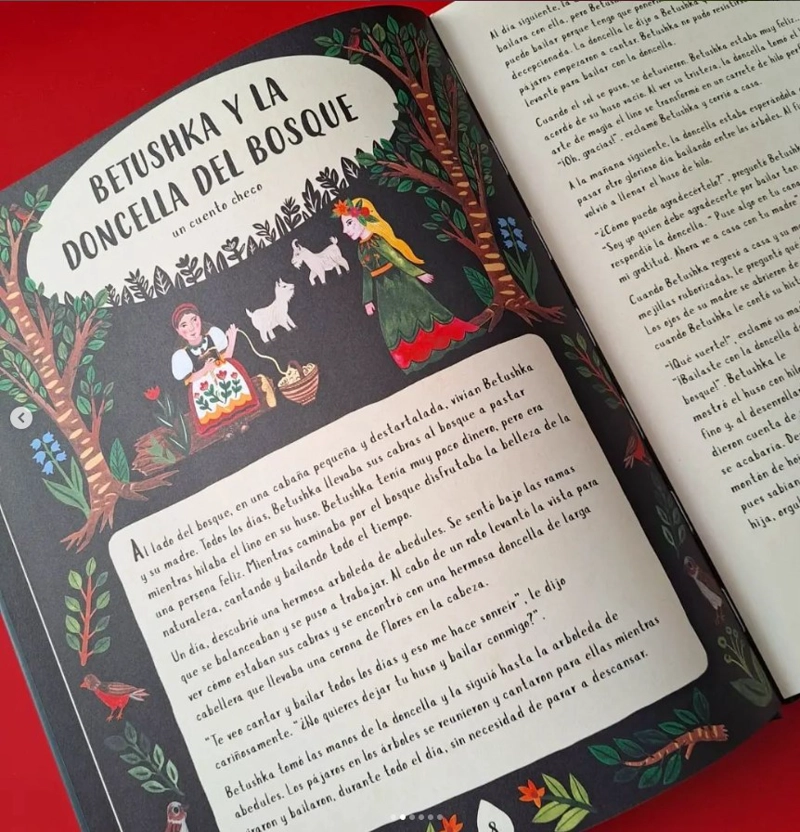 BETUSHKA Y LA
DONCELLA DEL BOSQUE
un cuento checo
Al lado del bosque, en una cabaña pequeña y destartalada, vivían Betushka
y su madre. Todos los días, Betushka llevaba sus cabras al bosque a pastar
mientras hilaba el lino en su huso. Betushka tenía muy poco dinero, pero era
una persona feliz. Mientras caminaba por el bosque disfrutaba la belleza de la
naturaleza, cantando y bailando todo el tiempo.
Un día, descubrió una hermosa arboleda de abedules. Se sentó bajo las ramas
que se balanceaban y se puso a trabajar. Al cabo de un rato levantó la vista para
ver cómo estaban sus cabras y se encontró con una hermosa doncella de larga
cabellera que llevaba una corona de flores en la cabeza.
"Te veo cantar y bailar todos los días y eso me hace sonreír", le dijo
cariñosamente. "¿No quieres dejar tu huso y bailar conmigo?".
Betushka tomó las manos de la doncella y la siguió hasta la arboleda de
abedules. Los pájaros en los árboles se reunieron y cantaron para ellas mientras
giraron y bailaron, durante todo el día, sin necesidad de parar a descansar.
8
Al día siguiente, la
bailara con ella, pero Betush
puedo bailar porque tengo que poner
decepcionada. La doncella le dijo a Betushka
pájaros empezaron a cantar. Betushka no pudo resistir
levantó para bailar con la doncella.
Cuando el sol se puso, se detuvieron. Betushka estaba muy feliz,
acordó de su huso vacío. Al ver su tristeza, la doncella tomó el
arte de magia el lino se transformó en un carrete de hilo per
"¡Oh, gracias!", exclamó Betushka y corrió a casa.
A la mañana siguiente, la doncella estaba esperándola
pasar otro glorioso día bailando entre los árboles. Al fi
volvió a llenar el huso de hilo.
"¿Cómo puedo agradecértelo?", preguntó Betush
"Soy yo quien debe agradecerte por bailar tan
respondió la doncella. "Puse algo en tu cana
mi gratitud. Ahora ve a casa con tu madre"
Cuando Betushka regresó a casa y su m
mejillas ruborizadas, le preguntó qu
Los ojos de su madre se abrieron de
cuando Betushka le contó su hist
"¡Qué suerte!", exclamó su ma
"¡Bailaste con la doncella d
bosque!". Betushka le
mostró el huso con hilo
fino y, al desenroll
dieron cuenta de
se acabaría. De
montón de ho
pues sabían
hija, orgul